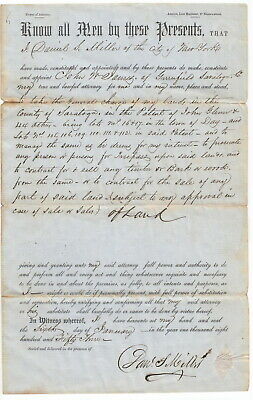 Know all Men by these Presents, THAT
I Daniel S. Miller of the City of New York
have made, constituted and appointed and by these presents do make, constitute
and appoint John W. James, of Greenfield Saratoga Co
my true and lawful attorney for me and in my name, place and stead
to take the general charge of my lands in the
County of Saratoga in the Patent of John Glenn &
others being lot in the town of Day and
Lot in said Patent and to
manage the same as he deem for my interest to prosecute
any person or persons for trespass upon said lands and
to contract for & sell any timber or Bark or wood
from the same or to contract for the sale of any
part of said land subject to my approval in
case of Sale or Sales of Land
giving and granting unto my said attorney full power and authority to do
and perform all and every act and thing whatsoever requisite and necessary to be
done in and about the premises, as fully, to all intents and purposes, as
I might or could do if personally present, with full power of substitution
and revocation, hereby ratifying and confirming all that my said attorney or
his substitute shall lawfully do or cause to be done by virtue hereof.
In Witness whereof, I have hereunto set my hand and seal
the day of January in the year one thousand eight
hundred and Fifty three
Sealed and delivered in the presence of
Danl S Miller